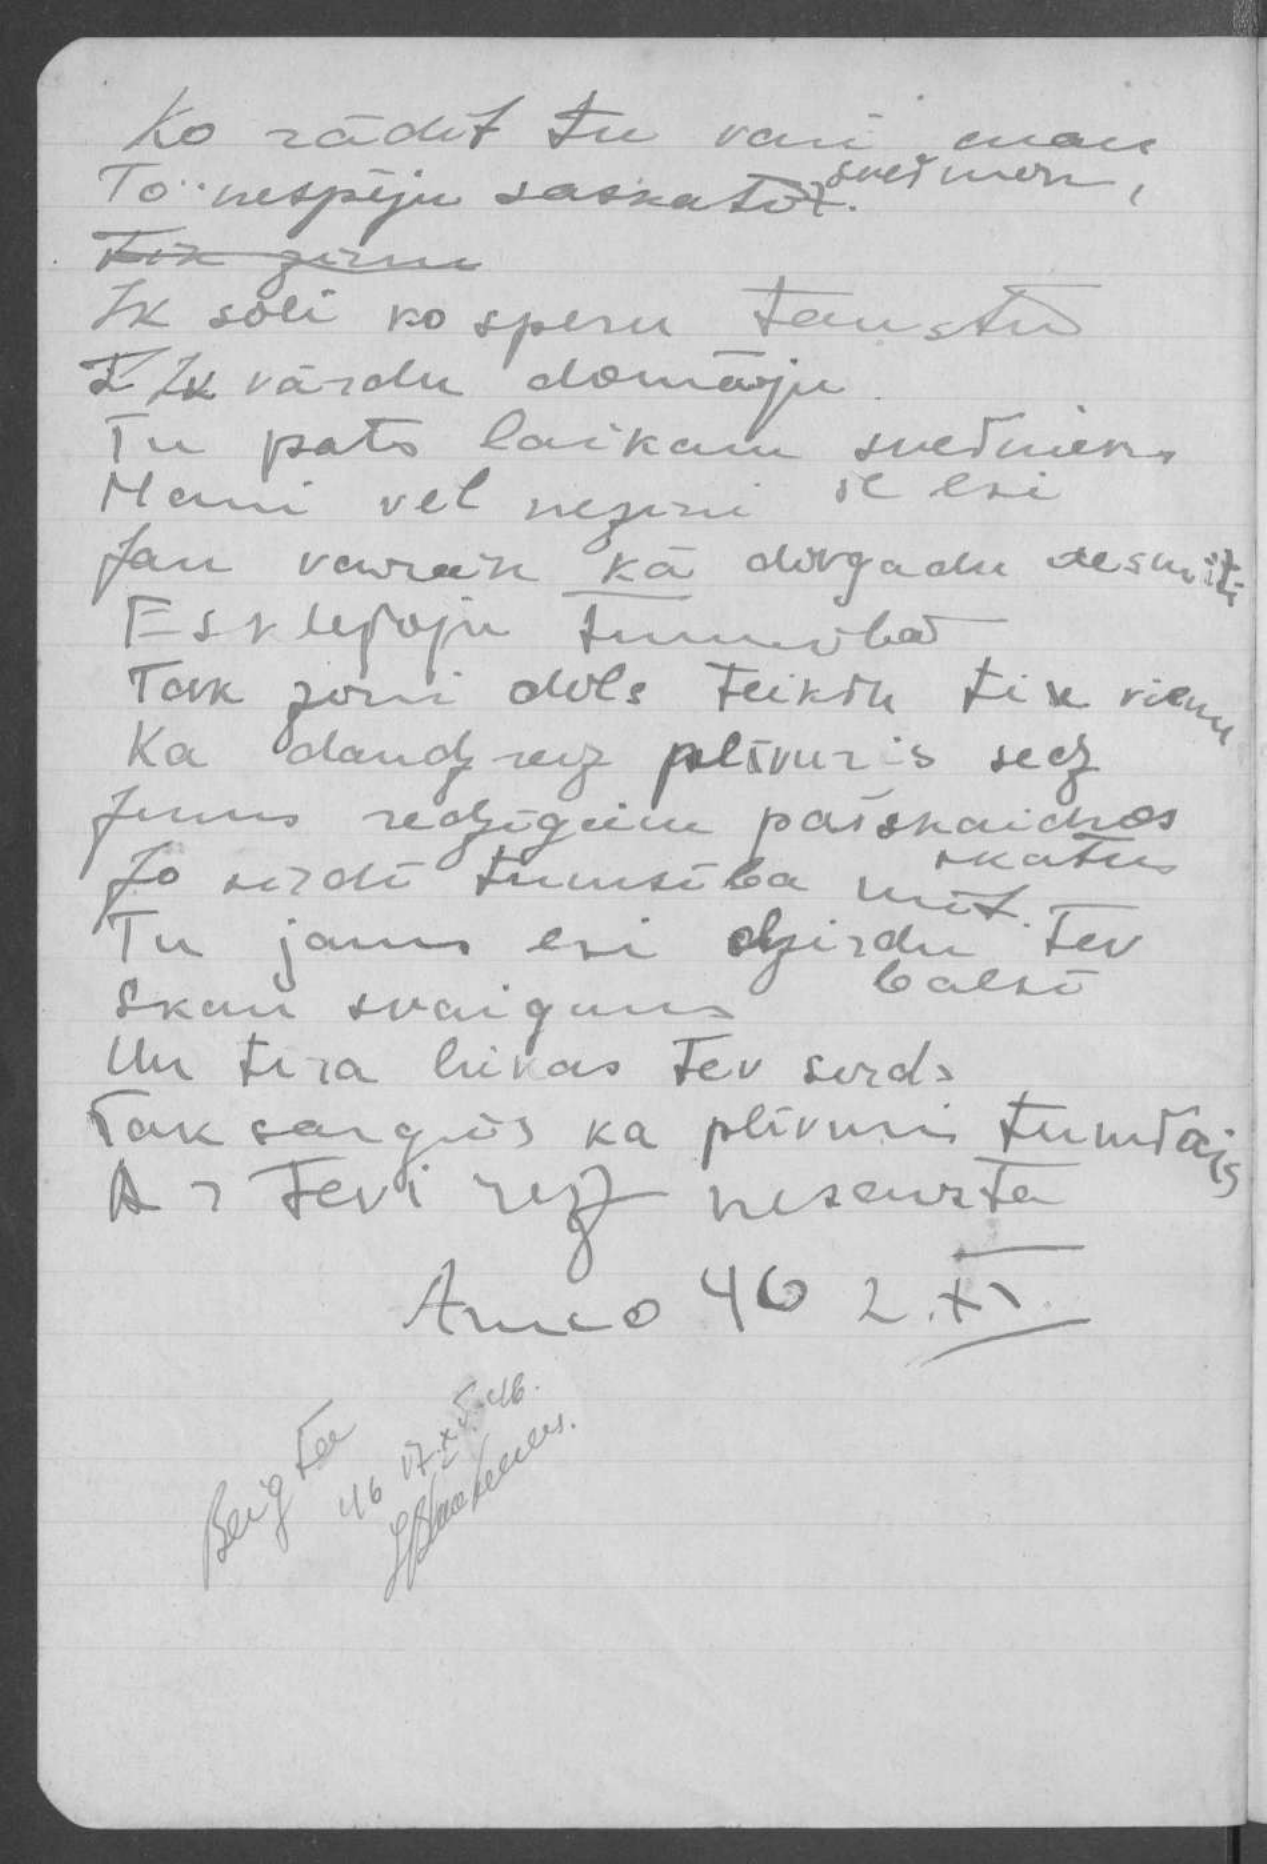 Ko rādīt tu vari man
svešinek,
To nespēju saskatīt.
Tik zinu
Ik soli ko speru taustu
Ik vārdu domāju
Tu pats laikam svešnieks
še esi
Mani vel nezini
Jau vairāk kā divgadu desmiti
Es klejoju tumsībā
Tak zini dēls teikšu tik vienu
Ka daudzreiz plīvuris sedz
Jums redzīgiem pašskaidros
skatus
Jo sirdī tumsība mīt.
Tu jauns esi dzirdu Tev
balsī
Skan svaigums
Un tīra liekas Tev sirds
Tak sargies ka plīvuris tumšais
Ar Tevi reiz nesausta
Anno 46 2.XI
Beigta
46 17.XI 46.